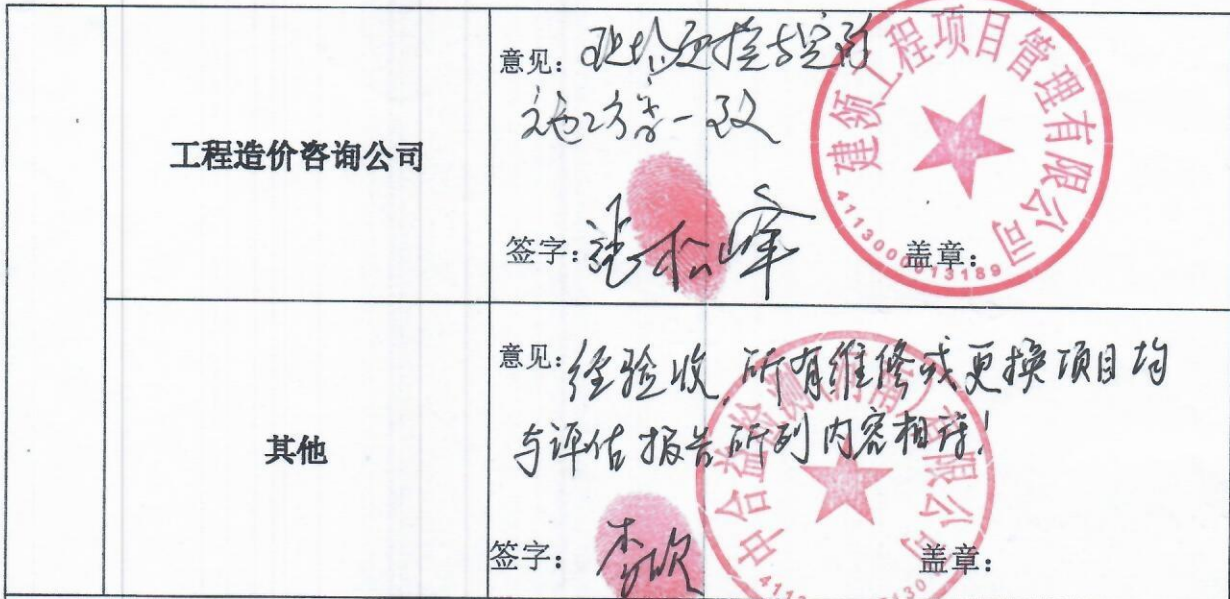 工程造价咨询公司
意见: 现场更换与定前
施工方案一致
签字: 张松峰
盖章:
建领工程项目管理有限公司
4113000013189
其他
意见: 经验收,所有维修或更换项目均
与评估报告所列内容相符!
签字: 李欣
盖章:
中合益检测(河南)有限公司